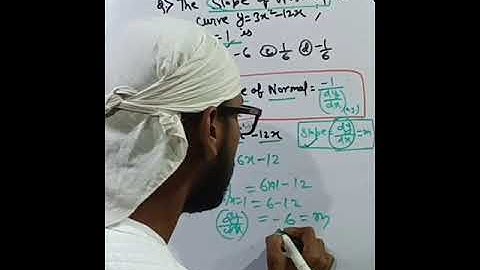 Q.> The Slope of
curve y=3x²-12x,
=1 is
-6 ⓒ 1/6 ⓓ -1/6
of Normal = -1/(dy/dx)
-12x
Slope = dy/dx = m
6x-12
= 6x1-12
x=1 = 6-12
(dy/dx) = -6 = m